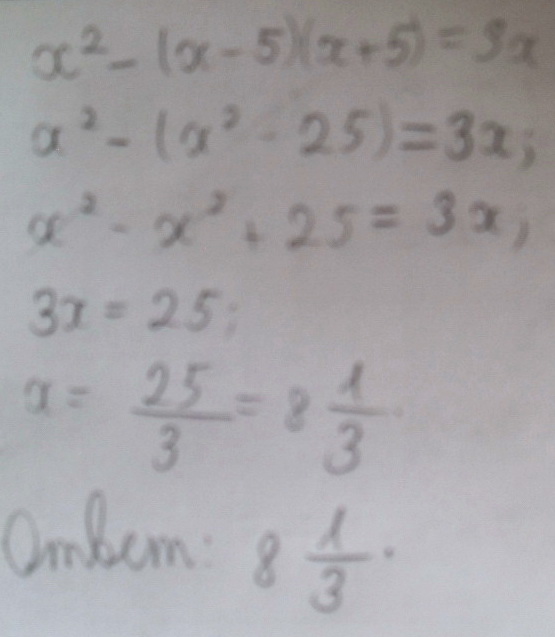 x² - (x - 5)(x + 5) = 3x
x² - (x² - 25) = 3x;
x² - x² + 25 = 3x;
3x = 25;
x = 25/3 = 8 1/3.
Ответ: 8 1/3.